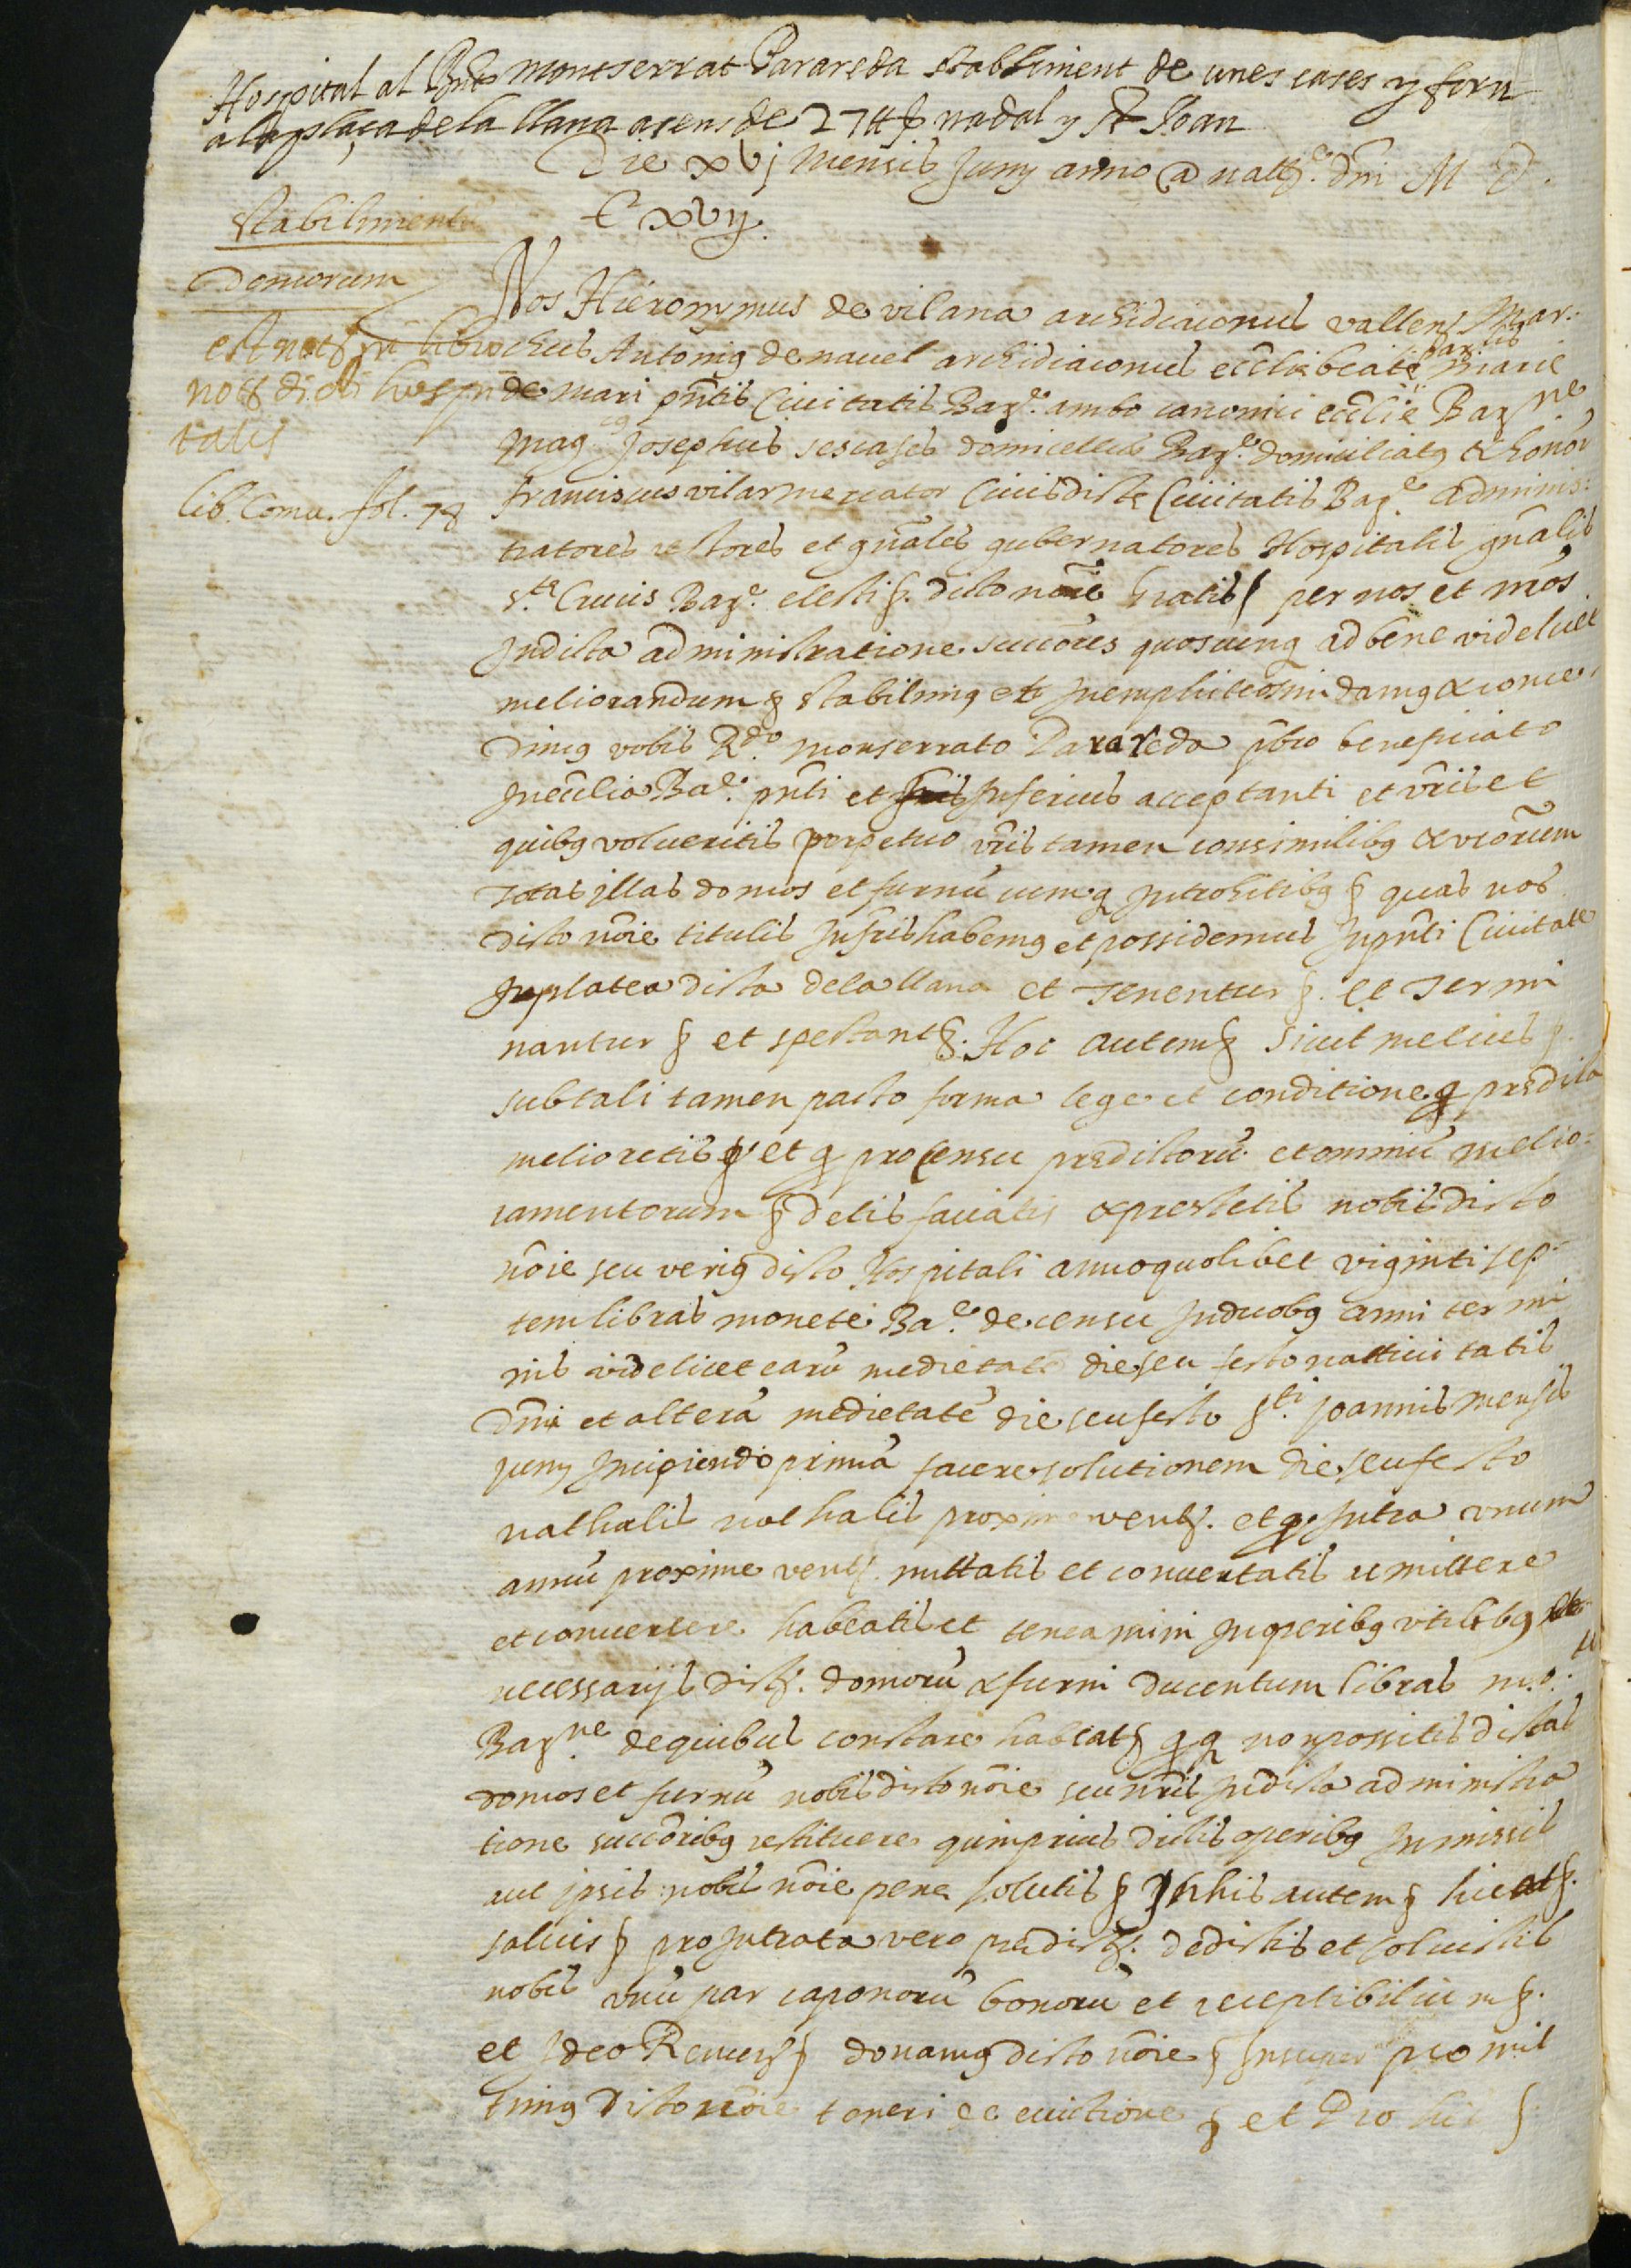 Hospital al Rnt Montserrat Parareda stabliment de unes cases y forn
a la plaça de la llana a cens de 27 ll p nadal y St Joan
Die xvj mensis Juny anno a natte. dni M D.
C xvij.
Stabilimentu
Domorum
est not in libro
not di. di hospi
talis
lib. Comu. fol. 78
Nos Hieronymus de vilana archidiaconus vallen Mar-
chus Antonig de navel archidiaconus ecclie beate Marie
de mari pntis Civitatis Barne. ambo canonici ecclie Bar ne
Mag cg Josephus sescases domicellus Barne. domiciliatg et honor
franciscus vilar mercator Civis dicte Civitatis Barne. adminis-
tratores rectores et gnales gubernatores Hospitalis gnalis
Ste Crucis Barne. electi §. dicto noie Gratis § per nos et nros
In dicta administratione succores quoscung ad bene videlicet
meliorandum § stabilimg et In emphiteosim damg & conce-
dimg vobis Rdo. Monserrato Parareda pbro beneficiato
In ecclia Bae. pnti et Inferius acceptanti et vris et
quibg volueritis perpetuo vris tamen consimilibg & vrorum
Totas illas domos et furnu cum Introhitibg § quas nos
dicto noie titulis Infris habemg et possidemus In pnti Civitate
In platea dicta de la llana et Tenentur §. et Termi
nantur § et spectant §. Hoc autem § sicut melius §.
sub tali tamen pacto forma lege et conditione q predicta
melioretis § et q pro censu predictoru et omniu melio-
ramentorum § detis faciatis & prestetis nobis dicto
noie seu verig dicto Hospitali anno quolibet viginti sep-
tem libras monete Bae. de censu In duobg anni termi
nis videlicet earu medietate die seu festo nattivitatis
Dni et altera medietate die seu festo Sti. Joannis mensis
Juny Incipiendo prima facere solutionem die seu festo
nathalis nathalis proxime vent. et q Intra unum
annu proxime vent. mittatis et convertatis remittere
et convertere habeatis et teneamini In operibg utilibg et
necessarijs dict. domoru & furni Ducentum libras m. o.
Bar ne de quibus constare habeat § q q non possitis dictas
domos et furnu nobis dicto noie seu nris In dicta administra
tione succoribg restituere quin prius dictis operibg Inmissis
aut ipsis nobis noie pene solutis § In his autem §
salvis § pro Intrata vero predict. dedistis et solvistis
nobis unu par caponoru bonoru et receptibiliu m §.
et Ideo Renun § donamg dicto noie § Insuper promit
timg dicto noie teneri de evictione § et Pro his §